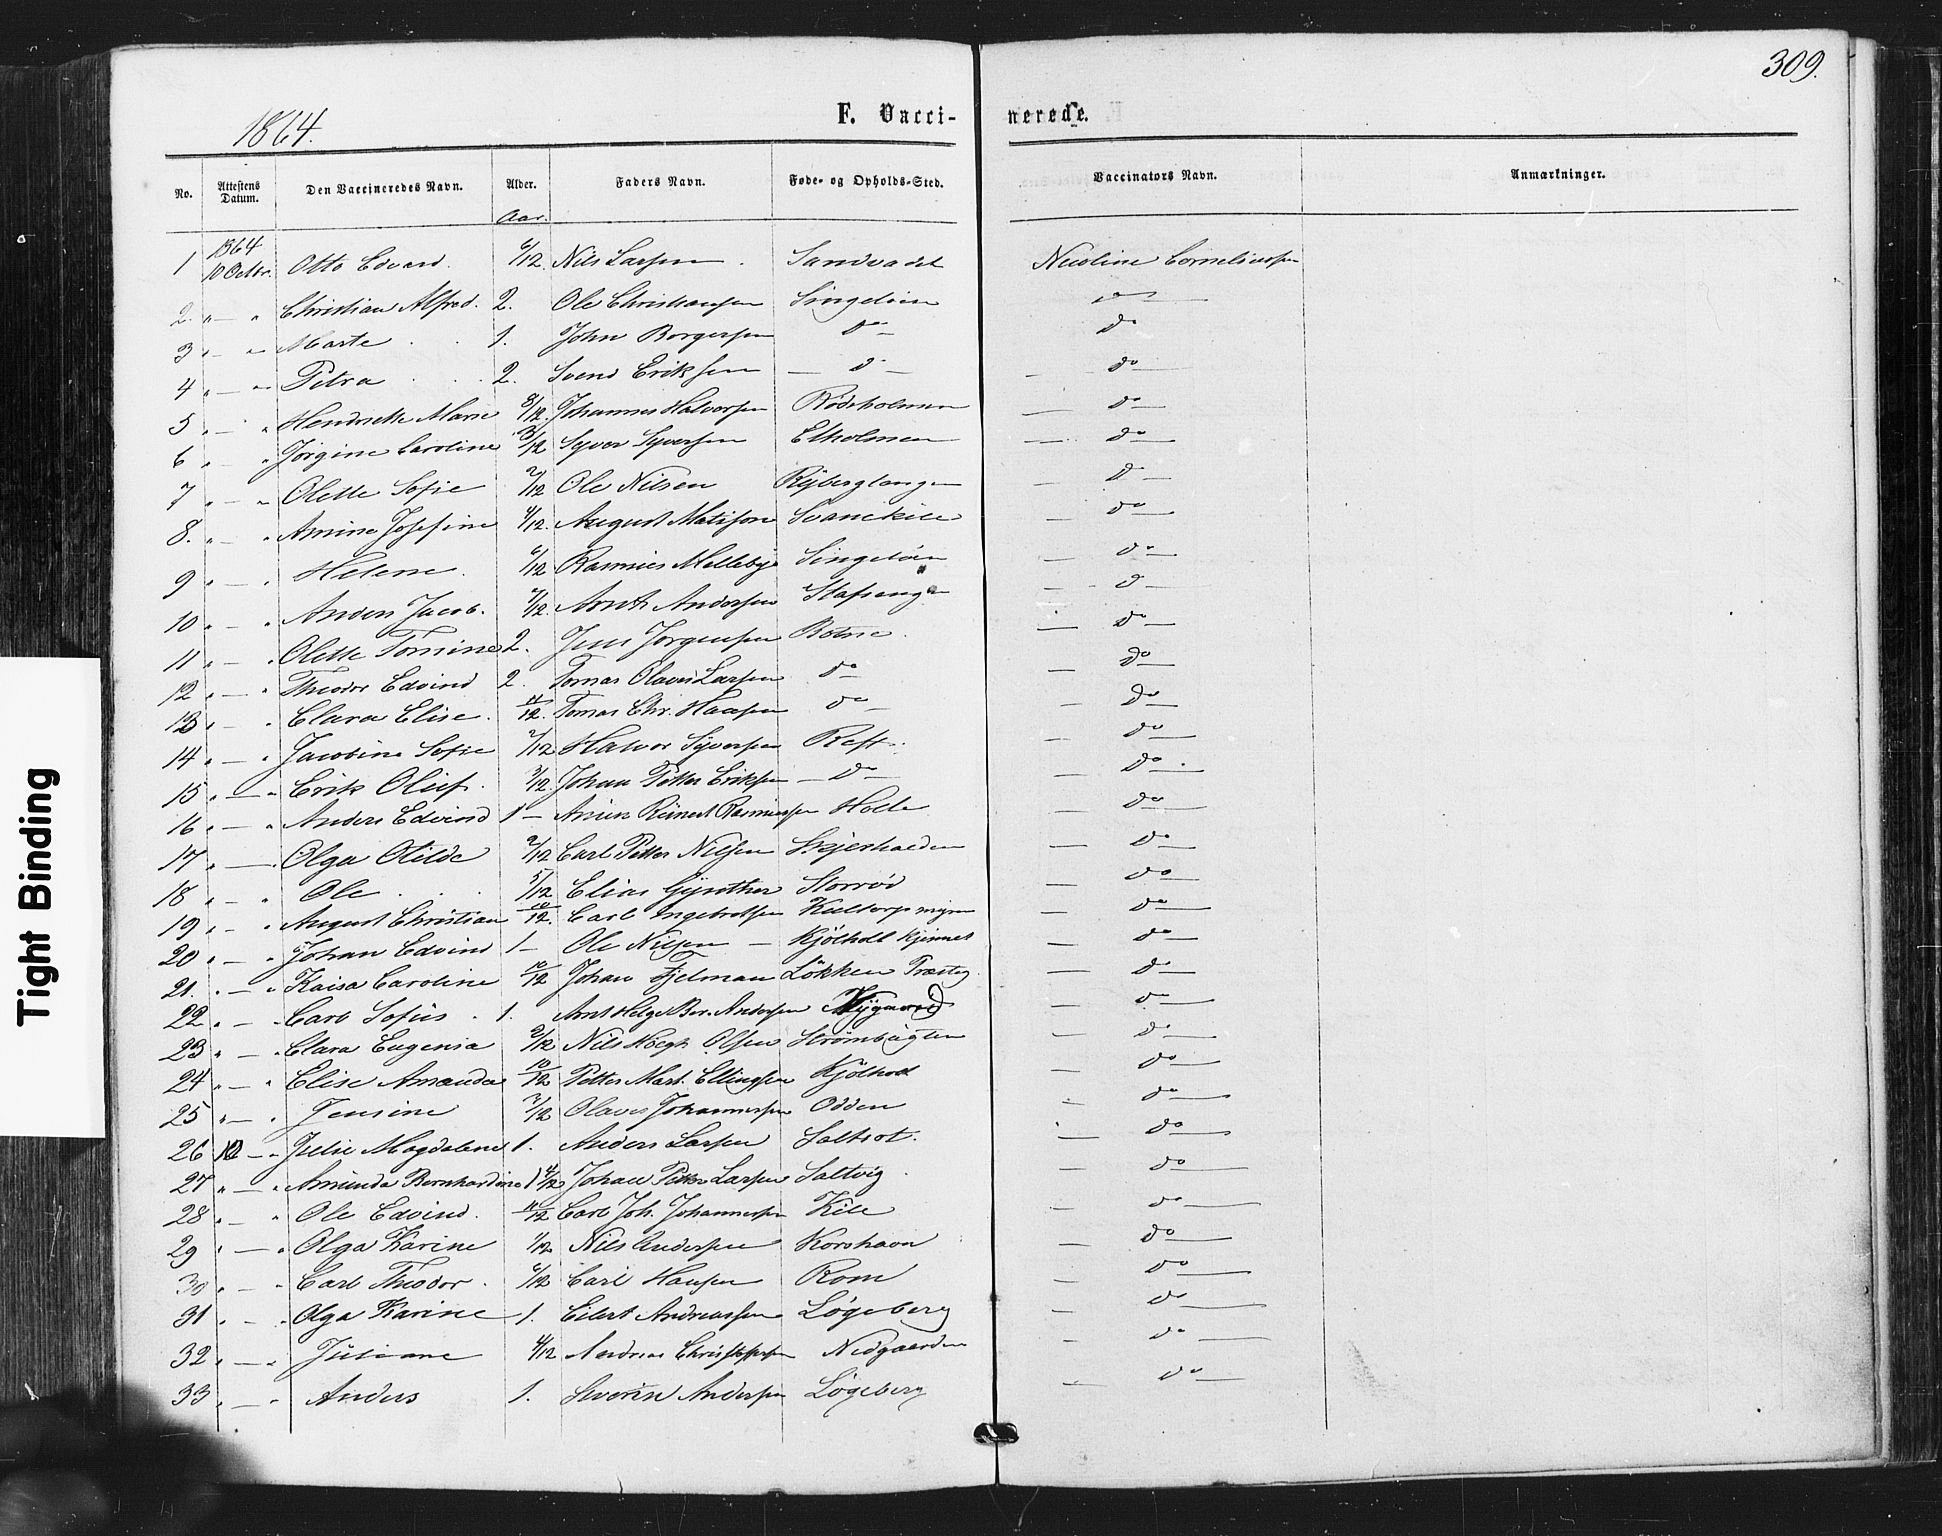 309.
1864.
F. Vacci- nerede.
No. Attestens Datum. Den Vaccineredes Navn. Alder. Faders Navn. Føde- og Opholds-Sted. Vaccinators Navn. Anmærkninger.
Aar.
1864
1 10 Octbr. Otto Edvard. 6/12 Nils Larsen. Sandvadet Nicoline Corneliussen
2. " — " Christian Alfred. 2. Ole Christiansen Singeløen do
3 " — " Marte 1. John Borgersen do do
4 " — " Petra 2. Svend Eriksen — do — — do
5 " — " Hendrette Marie 8/12. Johannes Halvorsen Rødsholmen — do —
6 " — " Jørgine Caroline 3/12 Syver Syversen Elholmen — do —
7 " — " Olette Sofie 2/12 Ole Nilsen — do —
8. " — " Amine Josefine 4/12. August Matison Svanekile — do —
9 " — " Helene. 6/12 Rasmus Mellebye Singeløen — do —
10 " — " Anders Jacob. 2/12. Arnt Andersen Stafsengen — do —
11 " — " Olette Tomine 2. Jens Jørgensen Botne. — do —
12 " — " Theodor Edvind 2. Tomas Olaves Larsen do — do —
13 " — " Clara Elise. 11/12. Tomas Chr. Hansen do — — do —
14 " — " Jacobine Sofie 2/12 Halvor Syversen Reff. — do —
15 " — " Erik Oluf. 3/12. Johan Petter Eriksen — do — — do —
16 " — " Anders Edvind 1 — Reinert Rasmussen Holte — do —
17 " — " Olga Otilde 9/12 Carl Petter Nilsen Skjerhalden — do —
18 " — " Ole 5/12 Elias Gynther Storrød — do —
19 " — " August Christian 10/12. Carl Ingebretsen — do —
20 " — " Johan Edvind 1 — Ole Nilsen — Kjølholt — do —
21. " — " Kaisa Caroline 10/12 Johan Løkken — do —
22 " — " Carl Sofus. 1. Arnt Helge Ber. Andersen Nygaard — do —
23 " — " Clara Eugenia 2/12 Nils Høegh Olsen Strømbugten — do —
24 " — " Elise Amanda 10/12 Petter Mart. Ellingsen Kjølholt — do —
25 " — " Jensine 7/12 Olaves Johannessen Odden — do —
26 12 — " Julie Magdalene 1. Anders Larsen Saltrot. — do —
27 " — " Aminda Bernhardine 1 4/12 Johan Petter Larsen Saltvig — do —
28 " — " Ole Edvind. 11/12 Carl Joh. Johannessen Kile — do —
29 " — " Olga Karine 1/12 Nils Andersen Korshavn — do —
30 " — " Carl Theodor. 6/12 Carl Hansen Rom — do —
31 " — " Olga Karine 1. Eilert Andreassen Løgeberg — do —
32 " — " Juliane 4/12 Andreas Christoffersen Nedgaarden — do —
33 " — " Anders 1. Severin Andersen Løgeberg — do —
Tight Binding